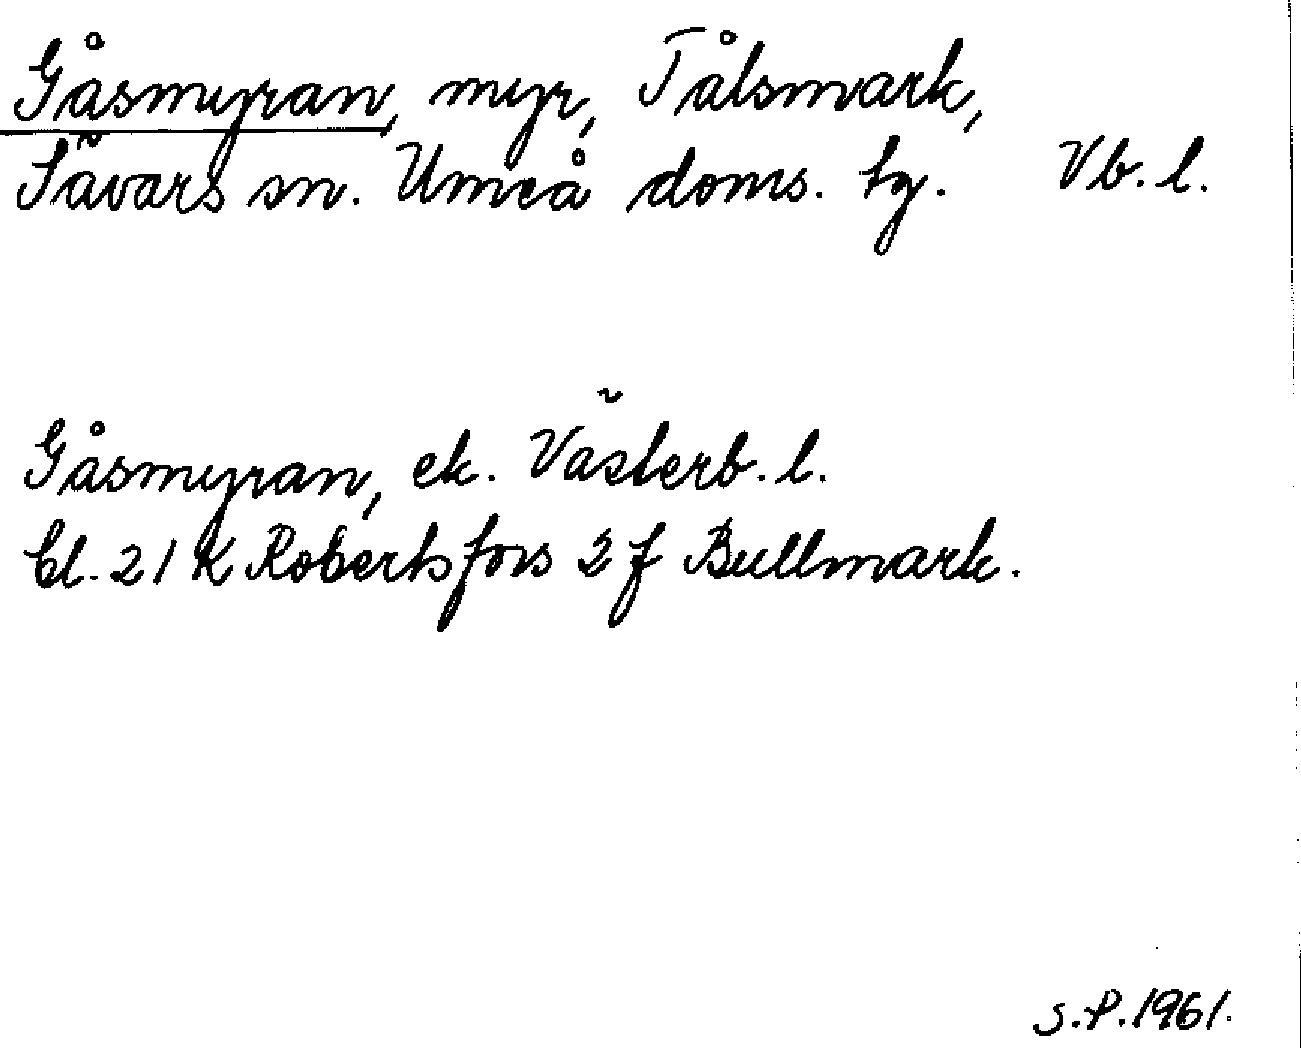 Gåsmyran, myr, Tålsmark,
Sävars sn. Umeå doms. tg. Vb. l.
Gåsmyran, ek. Västerb. l.
bl. 21 K Robertsfors 2 f Bullmark.
S.P. 1961.